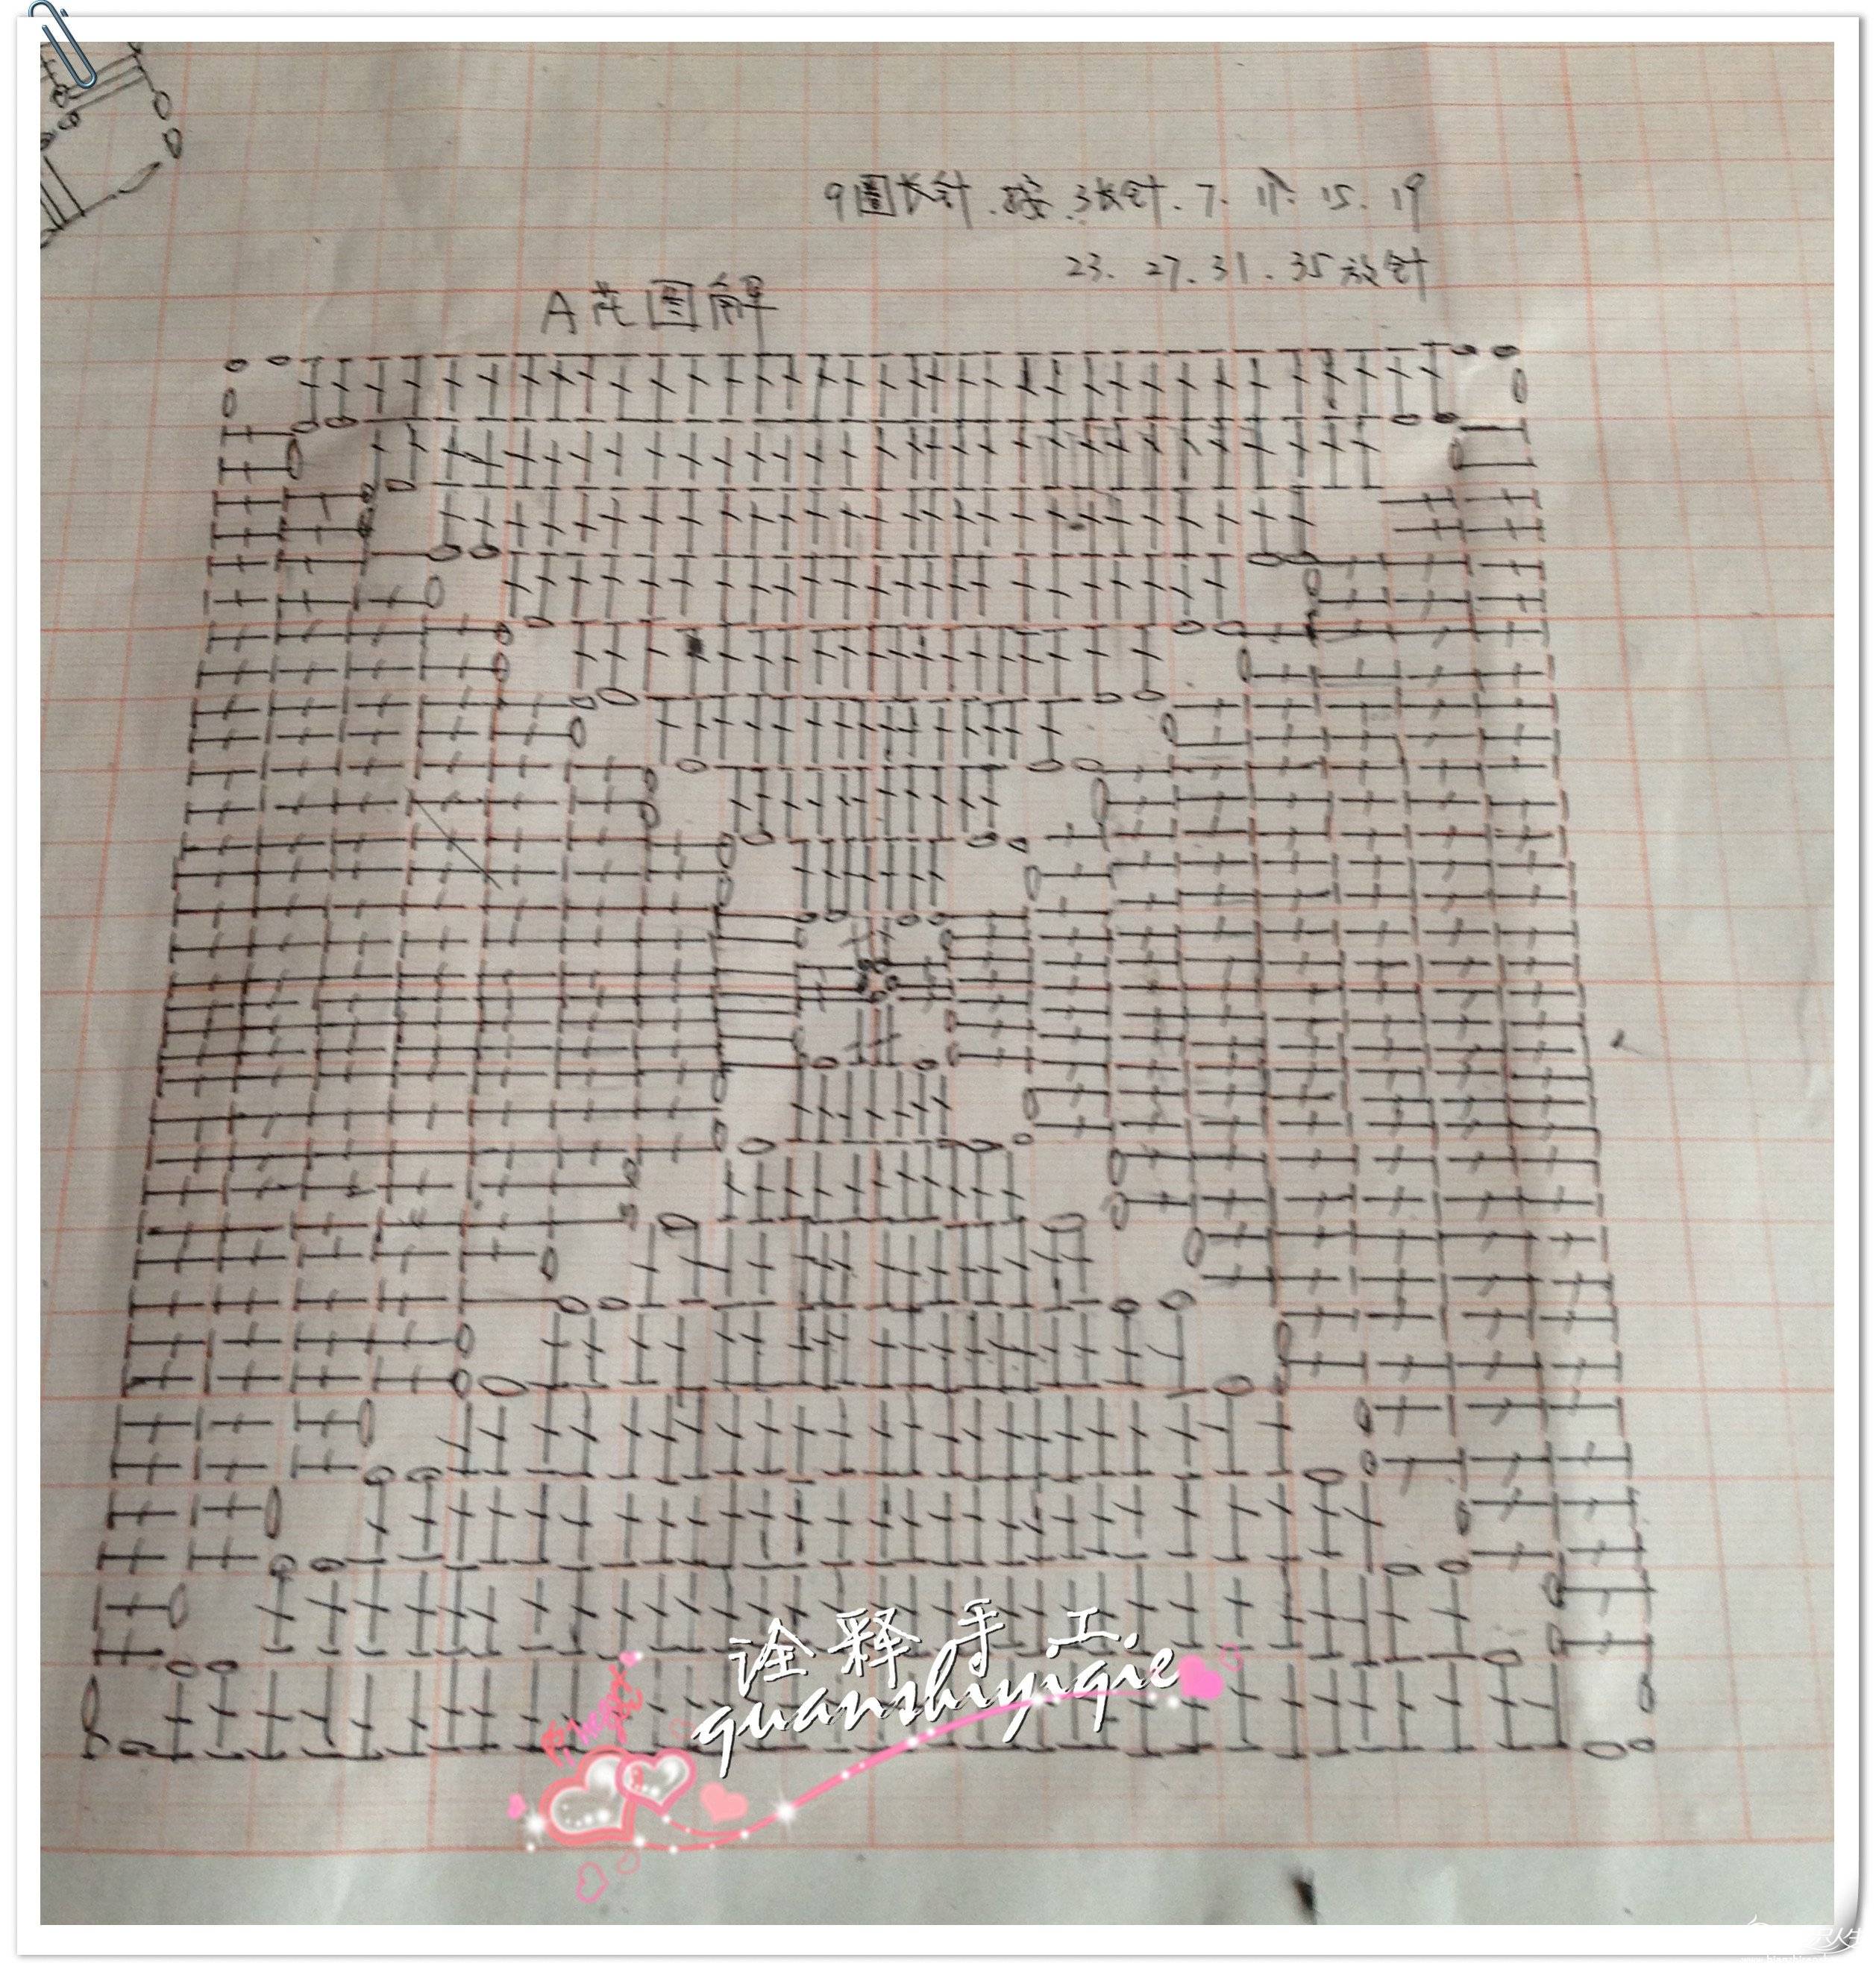 9圈长针.按.3长针.7.11.15.19
23.27.31.35放针
A花图解
诠释手工
quanshiyiqie